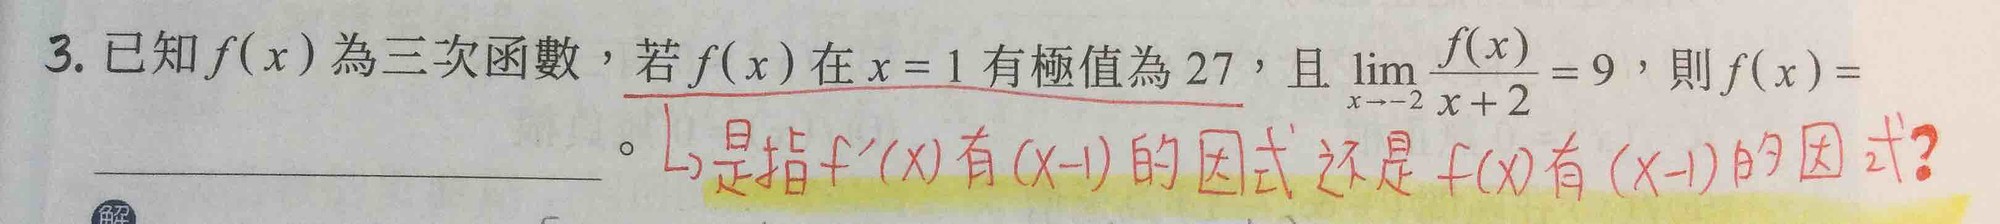 3. 已知 f(x) 為三次函數，若 f(x) 在 x = 1 有極值為 27，且 lim_{x→-2} f(x)/(x+2) = 9，則 f(x) =
____________________。
↳是指 f'(x) 有 (x-1) 的因式 还是 f(x) 有 (x-1) 的因式?
解